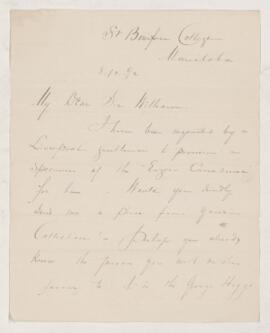 St Boniface College
Manitoba
My Dear Sir William
I have been requested by a
Liverpool gentleman to procure a
specimen of the "Eozoon Canadense"
for him. Would you kindly
send me a piece from your
Collection? Perhaps you already
know the person you will oblige
to it is the George Higgs